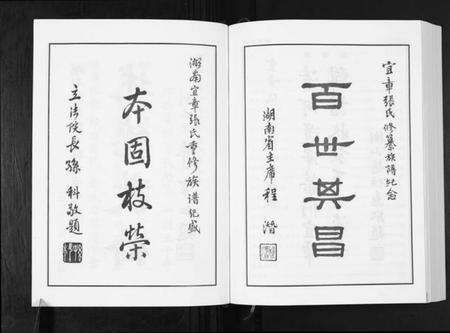 宜章張氏修纂族譜紀念
百世其昌
湖南省主席程潛
湖南宜章張氏重修族譜紀盛
本固枝榮
立法院長孫科敬題